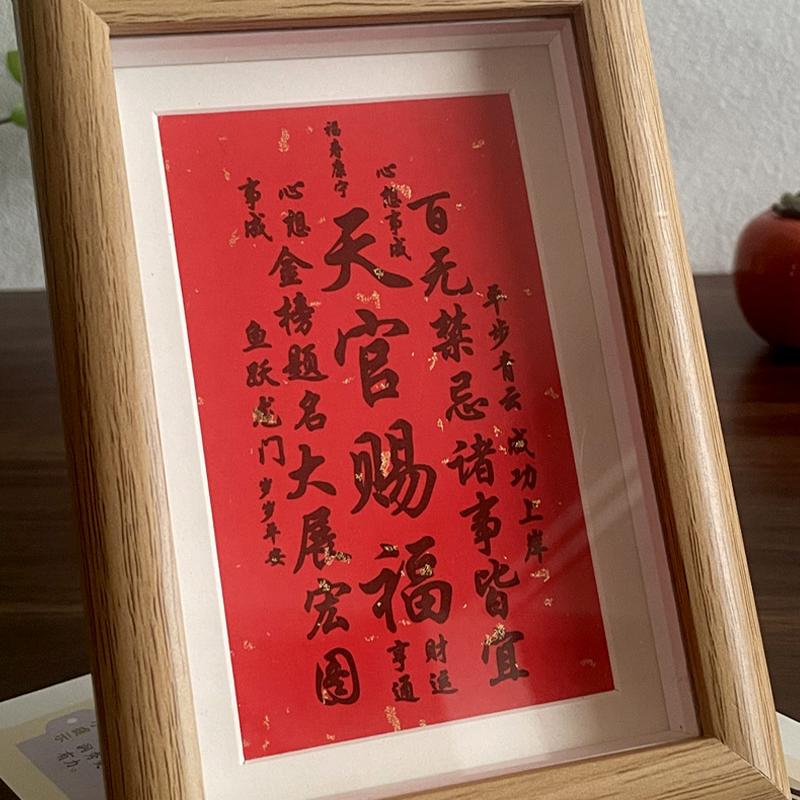 平步青云 成功上岸
百无禁忌诸事皆宜
心想事成
财运
亨通
福寿康宁
天官赐福
心想
金榜题名大展宏图
事成
鱼跃龙门 岁岁平安